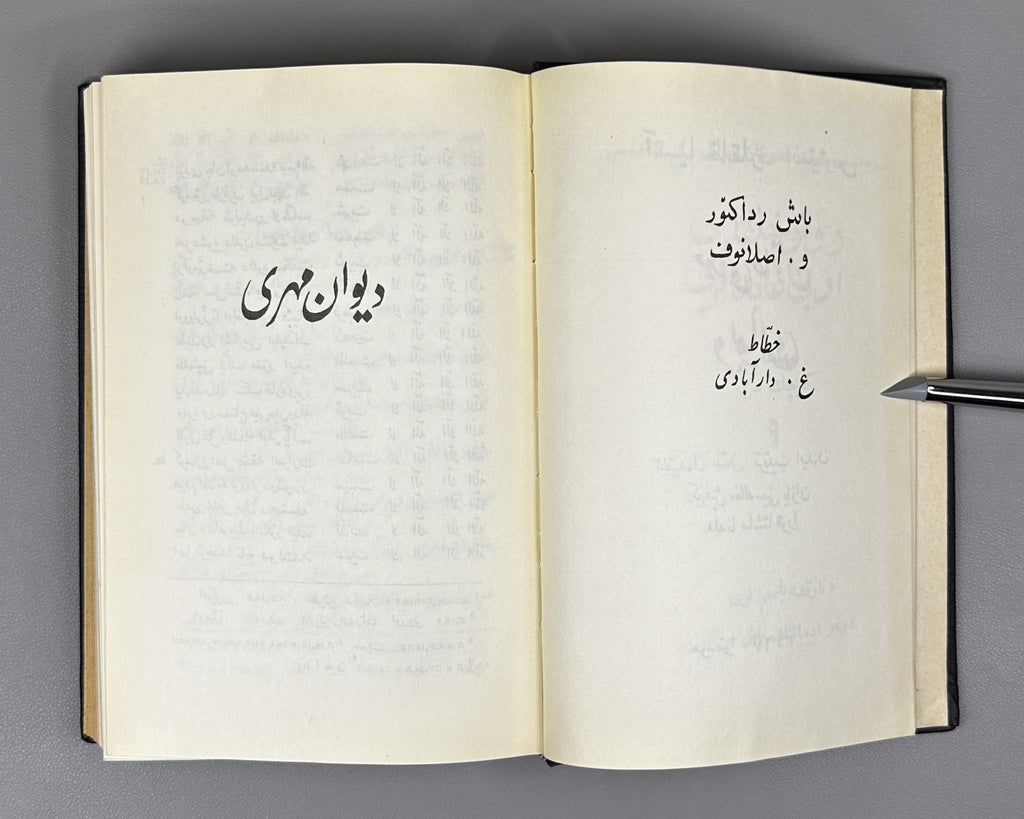 باش رداکتور
و. اصلانوف
خطّاط
غ. دارآبادی
دیوان مهری